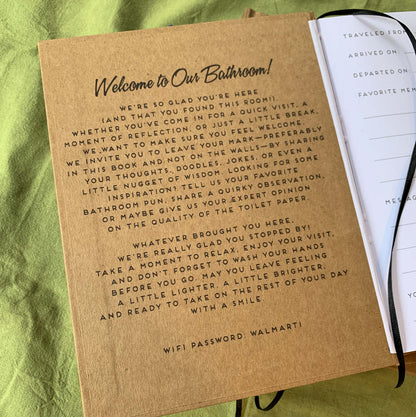 Welcome to Our Bathroom!
WE'RE SO GLAD YOU'RE HERE
(AND THAT YOU FOUND THIS ROOM!).
WHETHER YOU'VE COME IN FOR A QUICK VISIT, A
MOMENT OF REFLECTION, OR JUST A LITTLE BREAK,
WE WANT TO MAKE SURE YOU FEEL WELCOME.
WE INVITE YOU TO LEAVE YOUR MARK—PREFERABLY
IN THIS BOOK AND NOT ON THE WALLS—BY SHARING
YOUR THOUGHTS, DOODLES, JOKES, OR EVEN A
LITTLE NUGGET OF WISDOM. LOOKING FOR SOME
INSPIRATION? TELL US YOUR FAVORITE
BATHROOM PUN, SHARE A QUIRKY OBSERVATION,
OR MAYBE GIVE US YOUR EXPERT OPINION
ON THE QUALITY OF THE TOILET PAPER
WHATEVER BROUGHT YOU HERE,
WE'RE REALLY GLAD YOU STOPPED BY!
TAKE A MOMENT TO RELAX, ENJOY YOUR VISIT,
AND DON'T FORGET TO WASH YOUR HANDS
BEFORE YOU GO. MAY YOU LEAVE FEELING
A LITTLE LIGHTER, A LITTLE BRIGHTER,
AND READY TO TAKE ON THE REST OF YOUR DAY
WITH A SMILE.
WIFI PASSWORD: WALMART1
TRAVELED FROM
ARRIVED ON
DEPARTED ON
FAVORITE MEMO